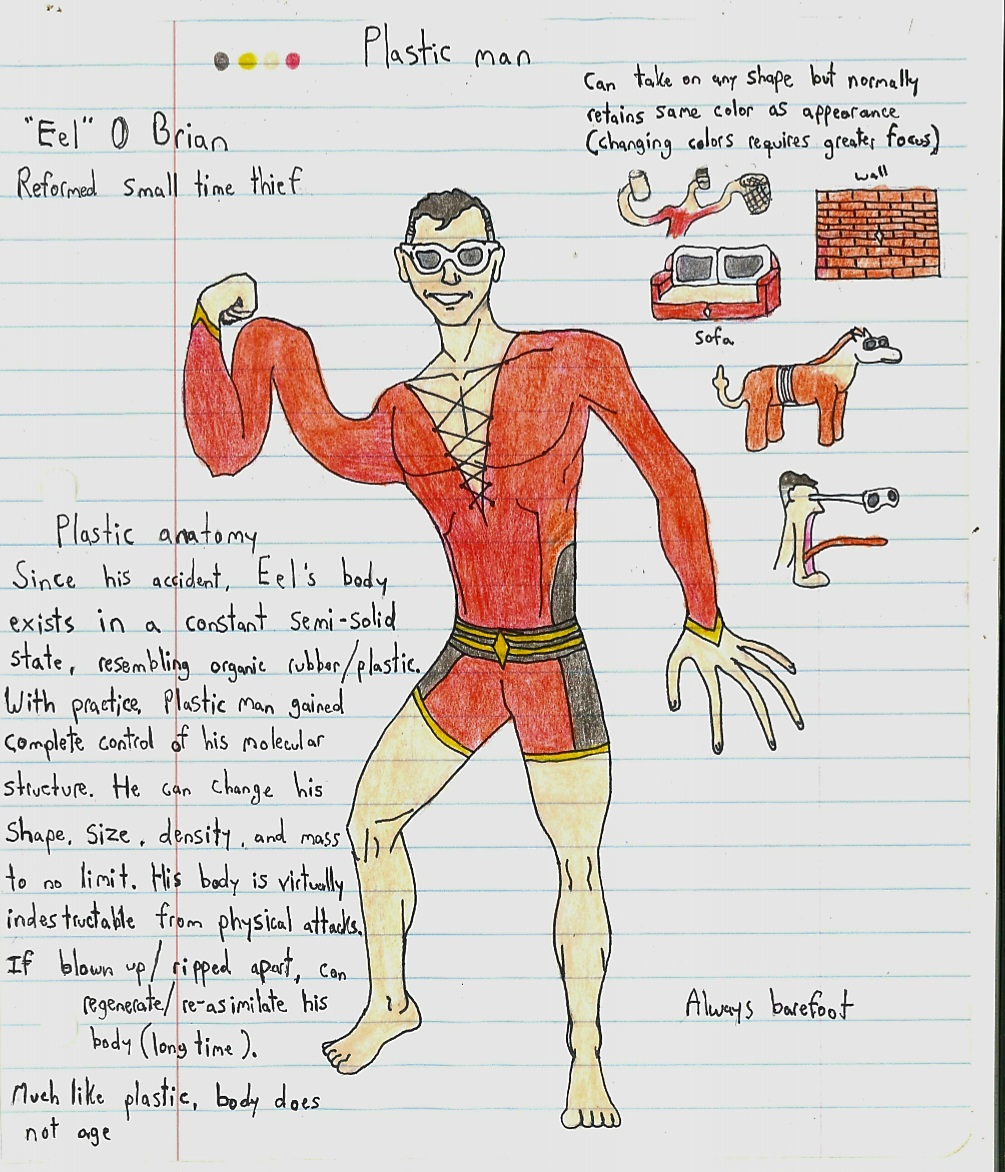 Plastic man
"Eel" O Brian
Reformed small time thief
Can take on any shape but normally
retains same color as appearance
(changing colors requires greater focus)
wall
Sofa
Plastic anatomy
Since his accident, Eel's body
exists in a constant semi-solid
state, resembling organic rubber/plastic.
With practice, Plastic man gained
complete control of his molecular
structure. He can change his
shape, size, density, and mass
to no limit. His body is virtually
indestructable from physical attacks.
If blown up/ripped apart, can
regenerate/re-asimilate his
body (long time).
Much like plastic, body does
not age
Always barefoot